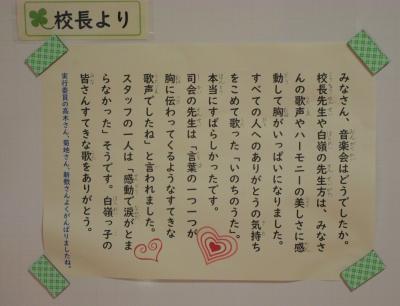 校長より
みなさん、音楽会はどうでしたか。
校長先生や白嶺の先生方は、みなさ
んの歌声やハーモニーの美しさに感
動して胸がいっぱいになりました。
すべての人へのありがとうの気持ち
をこめて歌った「いのちのうた」。
本当にすばらしかったです。
司会の先生は「言葉の一つ一つが
胸に伝わってくるようなすてきな
歌声でしたね」と言われました。
スタッフの一人は「感動で涙がとま
らなかった」そうです。白嶺っ子の
皆さんすてきな歌をありがとう。
実行委員の高木さん、菊地さん、新敷さんよくがんばりましたね。